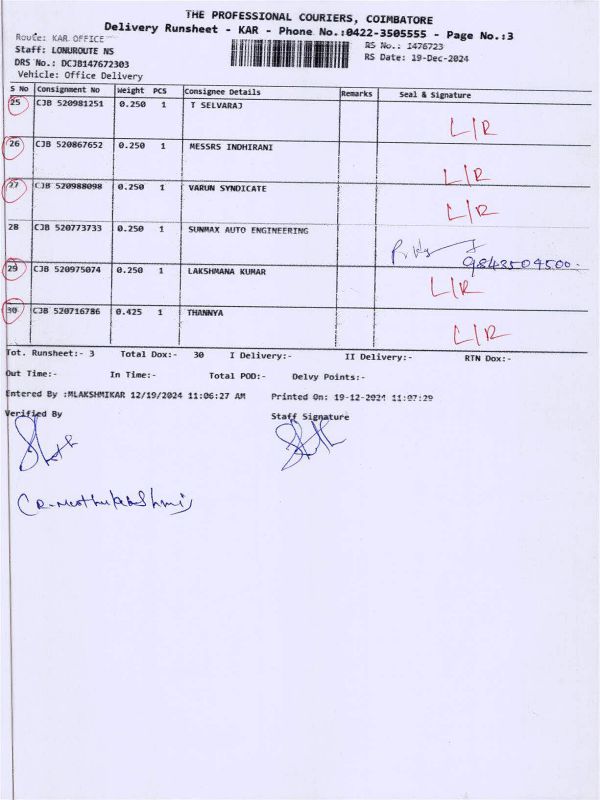 THE PROFESSIONAL COURIERS, COIMBATORE
Delivery Runsheet - KAR - Phone No.:0422-3505555 - Page No.:3
Route: KAR OFFICE
RS No.: 1476723
Staff: LONUROUTE NS
RS Date: 19-Dec-2024
DRS No.: DCJB147672303
Vehicle: Office Delivery
S No Consignment No Weight PCS Consignee Details Remarks Seal & Signature
25 CJB 520981251 0.250 1 T SELVARAJ
L/R
26 CJB 520867652 0.250 1 MESSRS INDHIRANI
L/R
27 CJB 520988098 0.250 1 VARUN SYNDICATE
L/R
28 CJB 520773733 0.250 1 SUNMAX AUTO ENGINEERING
9843504500.
29 CJB 520975074 0.250 1 LAKSHMANA KUMAR
L/R
30 CJB 520716786 0.425 1 THANNYA
L/R
Tot. Runsheet:- 3 Total Dox:- 30 I Delivery:- II Delivery:- RTN Dox:-
Out Time:- In Time:- Total POD:- Delvy Points:-
Entered By :MLAKSHMIKAR 12/19/2024 11:06:27 AM Printed On: 19-12-2024 11:07:29
Verified By Staff Signature